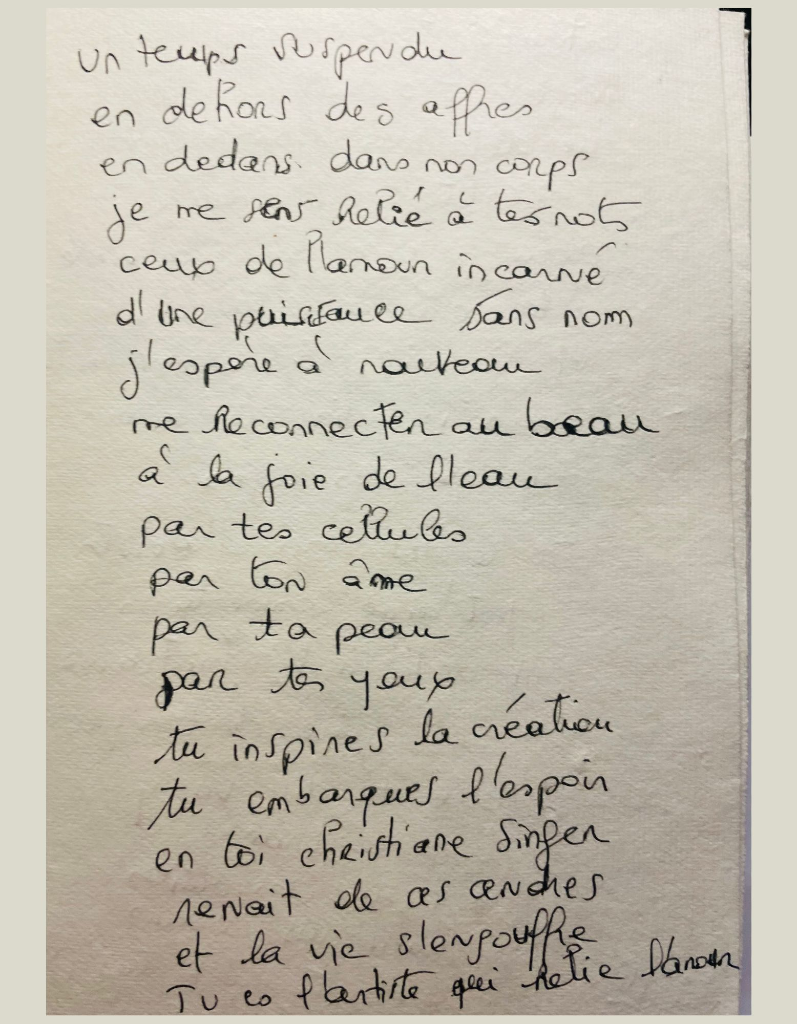 un temps suspendu
en dehors des affres
en dedans. dans nos corps
je me sens relié à tes mots
ceux de l'amour incarné
d'une puissance sans nom
j'espère à nouveau
me reconnecter au beau
à la joie de l'eau
par tes cellules
par ton âme
par ta peau
par tes yeux
tu inspires la création
tu embarques l'espoir
en toi christiane Singer
renait de ces cendres
et la vie s'engouffre
Tu es l'artiste qui relie l'amour